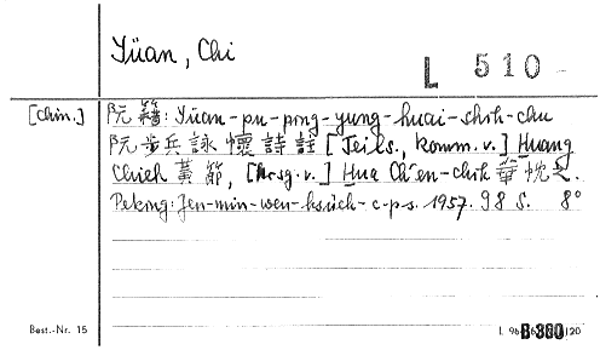 Yüan, Chi
L 510
[Chin.] 阮籍: Yüan-pu-ping-yung-huai-shih-chu
阮步兵詠懷詩註 [Teils., komm. v.] Huang
Chieh 黃節, [Hrsg. v.] Hua Ch'en-chih 華忱之.
Peking: Jen-min-wen-hsüeh-c-ps. 1957. 98 S. 8°
Best.-Nr. 15
L 96 B 360 120